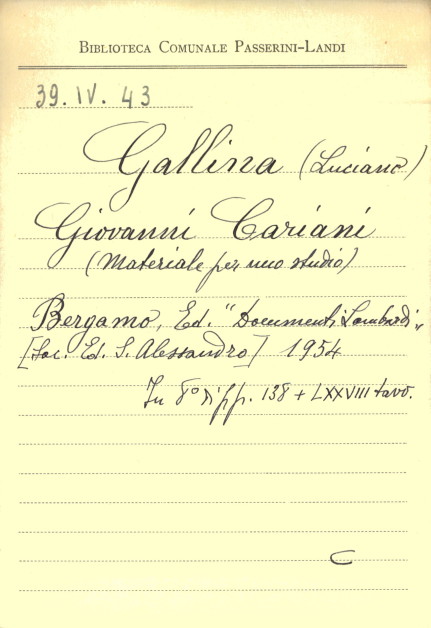 BIBLIOTECA COMUNALE PASSERINI-LANDI
39. IV. 43
Gallina (Luciano)
Giovanni Cariani
(Materiale per uno studio)
Bergamo, Ed. "Documenti Lombardi"
[Soc. Ed. S. Alessandro] 1954
In 8° di pp. 138 + LXXVIII tavv.
C